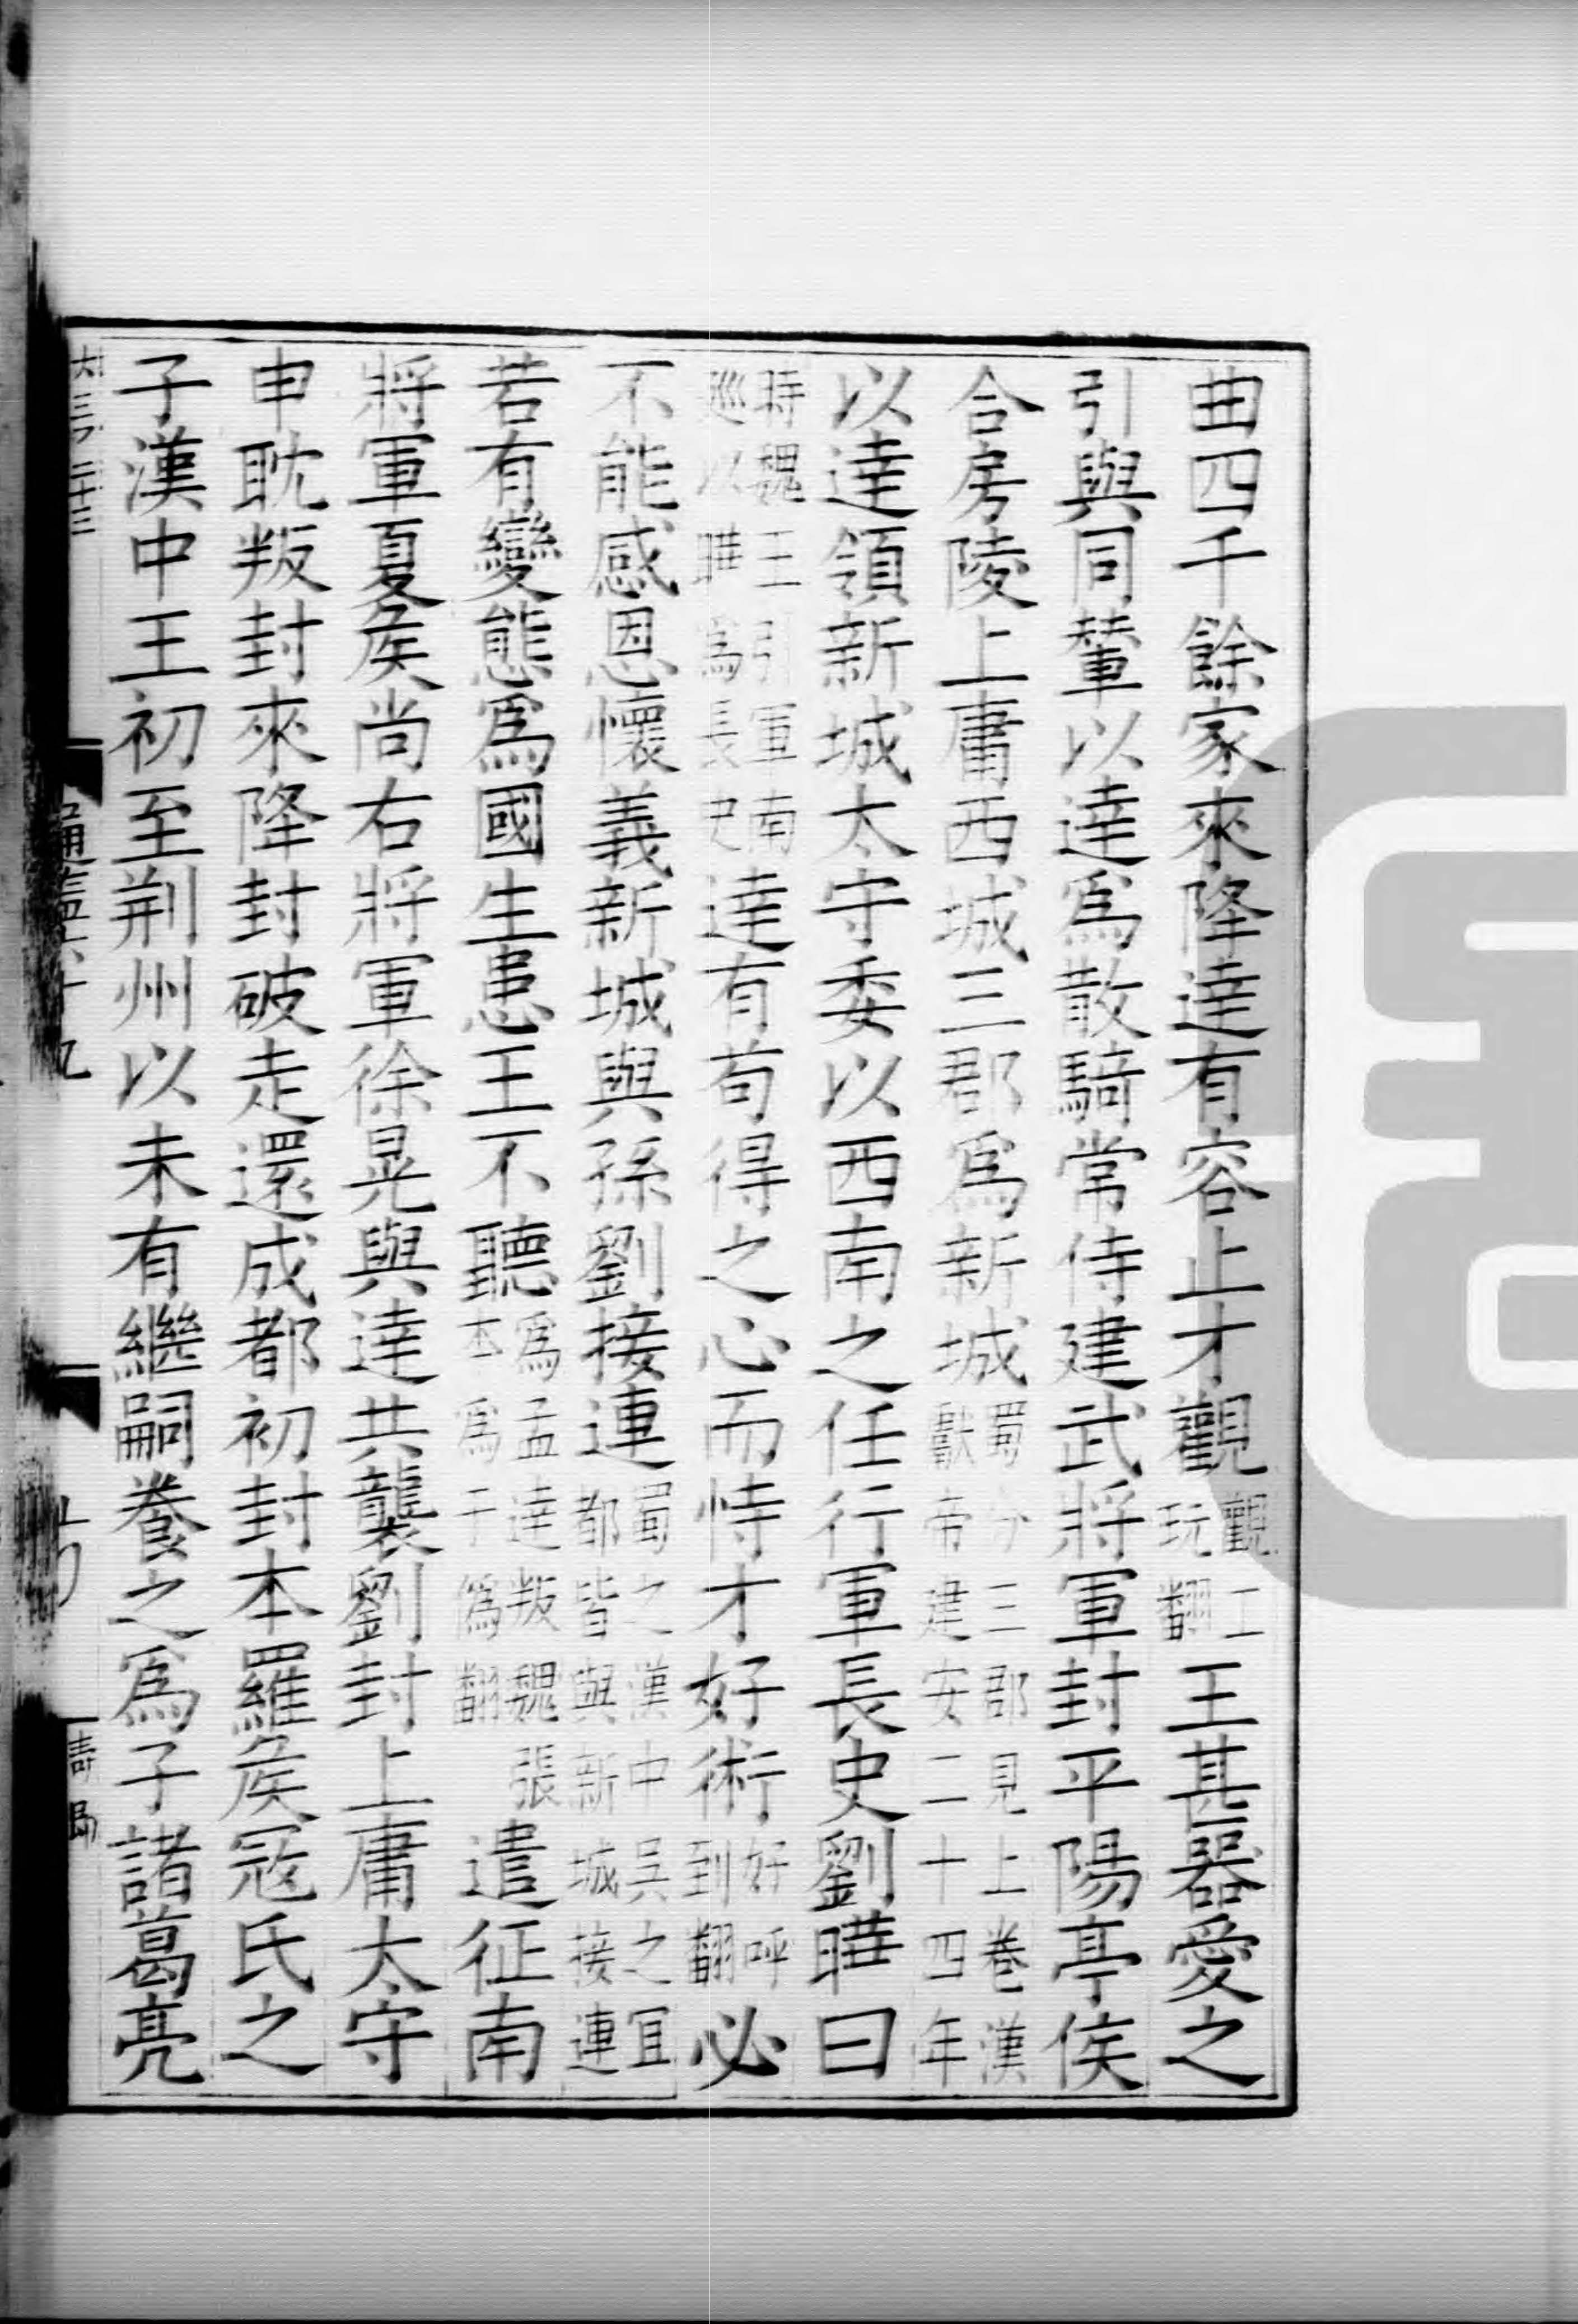 曲四千餘家來降達有容止才觀觀工玩翻王甚器愛之
引與同輦以達爲散騎常侍建武將軍封平陽亭侯
合房陵上庸西城三郡爲新城蜀分三郡見上卷漢獻帝建安二十四年
以達領新城太守委以西南之任行軍長史劉曄曰
時魏王引軍南巡以曄爲長史達有苟得之心而恃才好術好呼到翻必
不能感恩懷義新城與孫劉接連蜀之漢中吳之宜都皆與新城接連
若有變態爲國生患王不聽爲孟達叛魏張本爲于僞翻遣征南
將軍夏侯尚右將軍徐晃與達共襲劉封上庸太守
申耽叛封來降封破走還成都初封本羅侯寇氏之
子漢中王初至荆州以未有繼嗣養之爲子諸葛亮